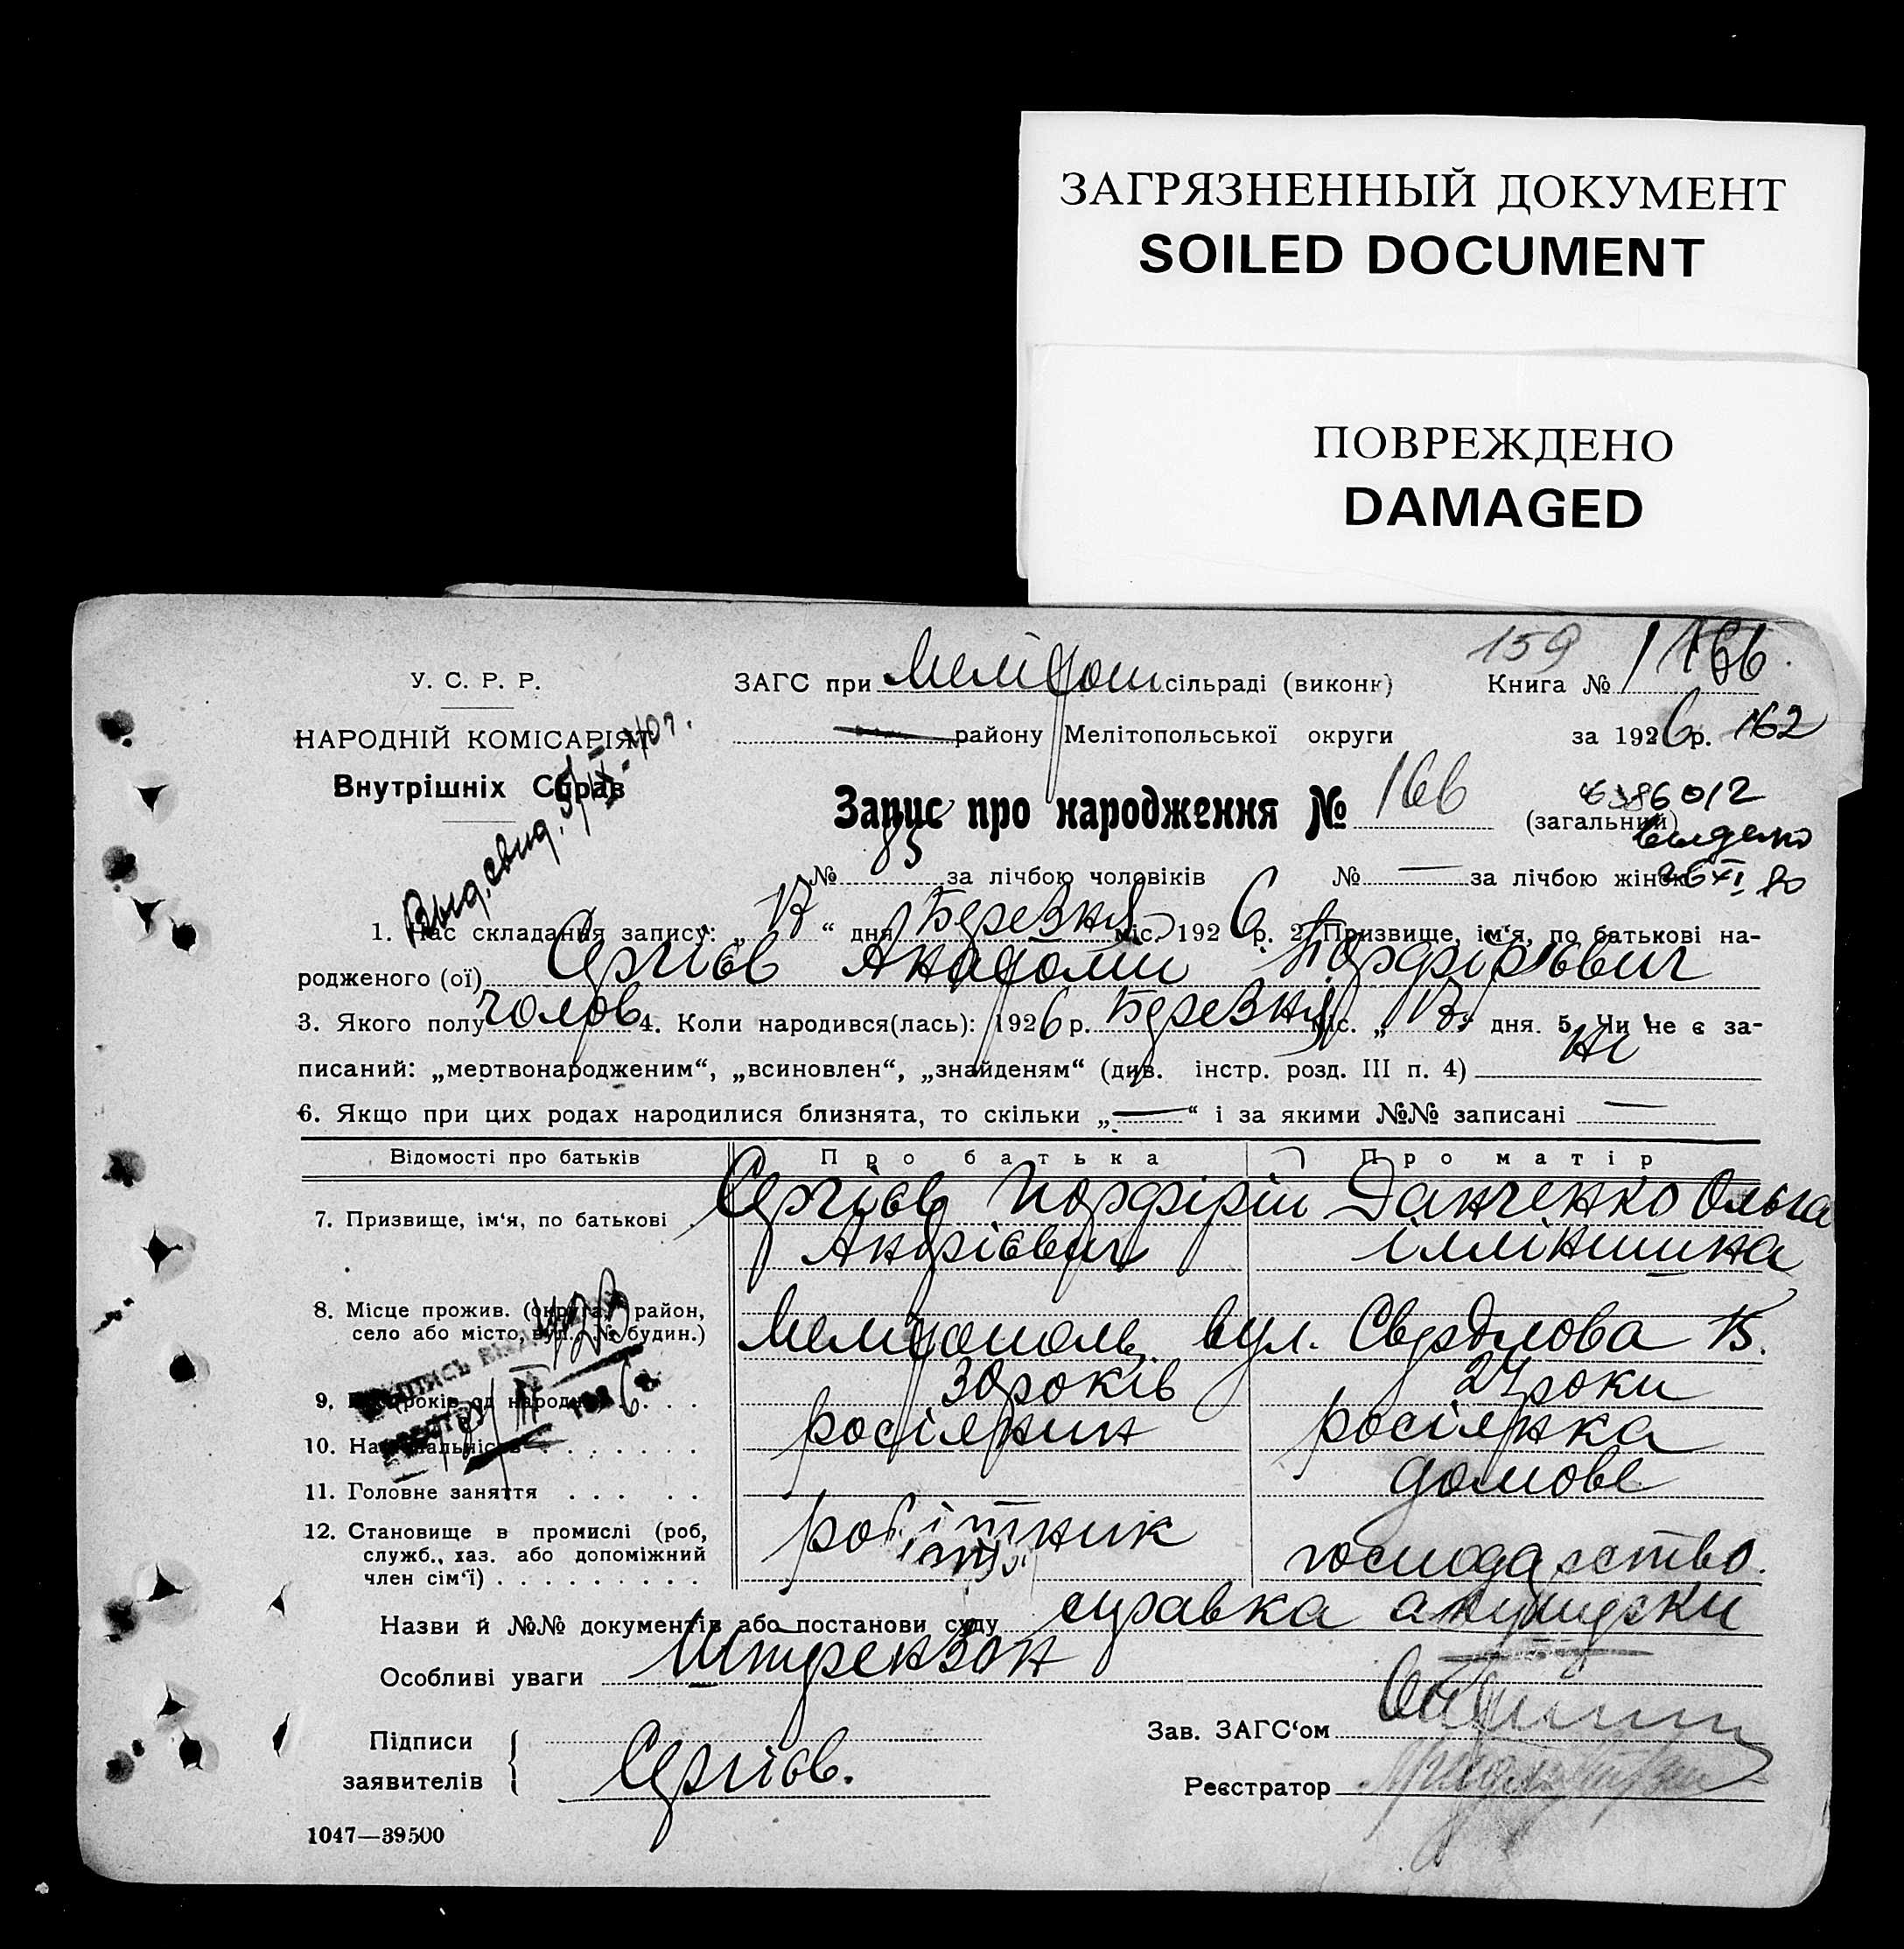 ЗАГРЯЗНЕННЫЙ ДОКУМЕНТ
SOILED DOCUMENT
ПОВРЕЖДЕНО
DAMAGED
159
У. С. Р. Р. ЗАГС при Меліт сільраді (виконк) Книга № 166
НАРОДНІЙ КОМІСАРІЯТ району Мелітопольської округи за 1926 р. 162
Внутрішніх Справ
Запис про народження № 166 (загальний)
6386012
выдано
26 XI 80
Выд. свид.
№ 85 за лічбою чоловіків № — за лічбою жінок
1. Час складання запису: „ “ дня Березня міс. 1926 р. 2. Призвище, ім‘я, по батькові на-
родженого (ої) Сергієв Анатолій Порфірієвич
3. Якого полу чолов 4. Коли народився(лась): 1926 р. Березня міс. „ “ дня. 5. Чи не є за-
писаний: „мертвонародженим“, „всиновлен“, „знайденям“ (див. інстр. розд. III п. 4) Ні
6. Якщо при цих родах народилися близнята, то скільки „—“ і за якими №№ записані —
Відомості про батьків Про батька Про матір
7. Призвище, ім‘я, по батькові Сергієв Порфірій Данченко Ольга
Андрієвич
8. Місце прожив. (округа, район,
село або місто, вул., № будин.) Мелітополь вул. Свердлова 15.
9. років од народж. 30 років 24 роки
10. Національність росіянин росіянка
11. Головне заняття домове
12. Становище в промислі (роб, робітник
служб., хаз. або допоміжний господарство.
член сім‘ї)
Назви й №№ документів або постанови суду справка акушерки
Штрензон
Особливі уваги
Зав. ЗАГС‘ом
Підписи
заявителів Сергієв.
Реєстратор
1047—39500